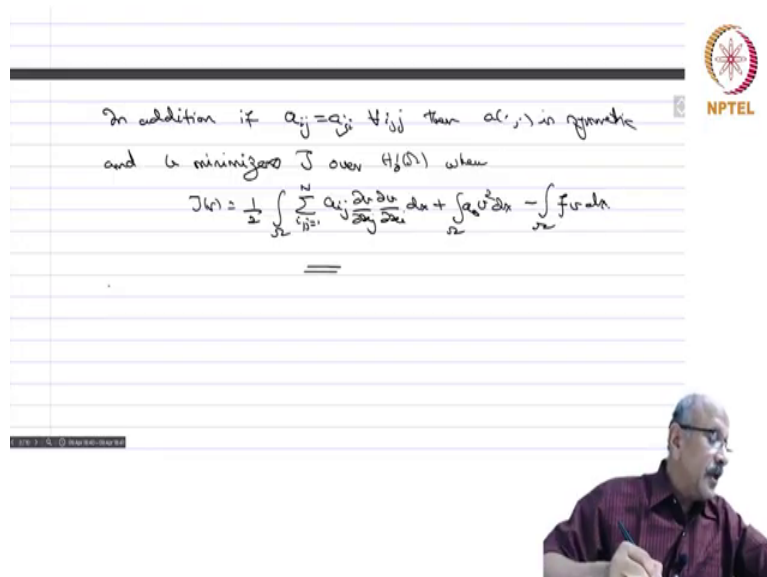 In addition if a_ij = a_ji ∀ i,j then a(·,·) is symmetric
and u minimizes J over H¹₀(Ω) where
J(v) = 1/2 ∫_Ω Σ_{i,j=1}^N a_ij ∂v/∂x_j ∂v/∂x_i dx + ∫_Ω a₀ v² dx − ∫_Ω f v dx.
NPTEL